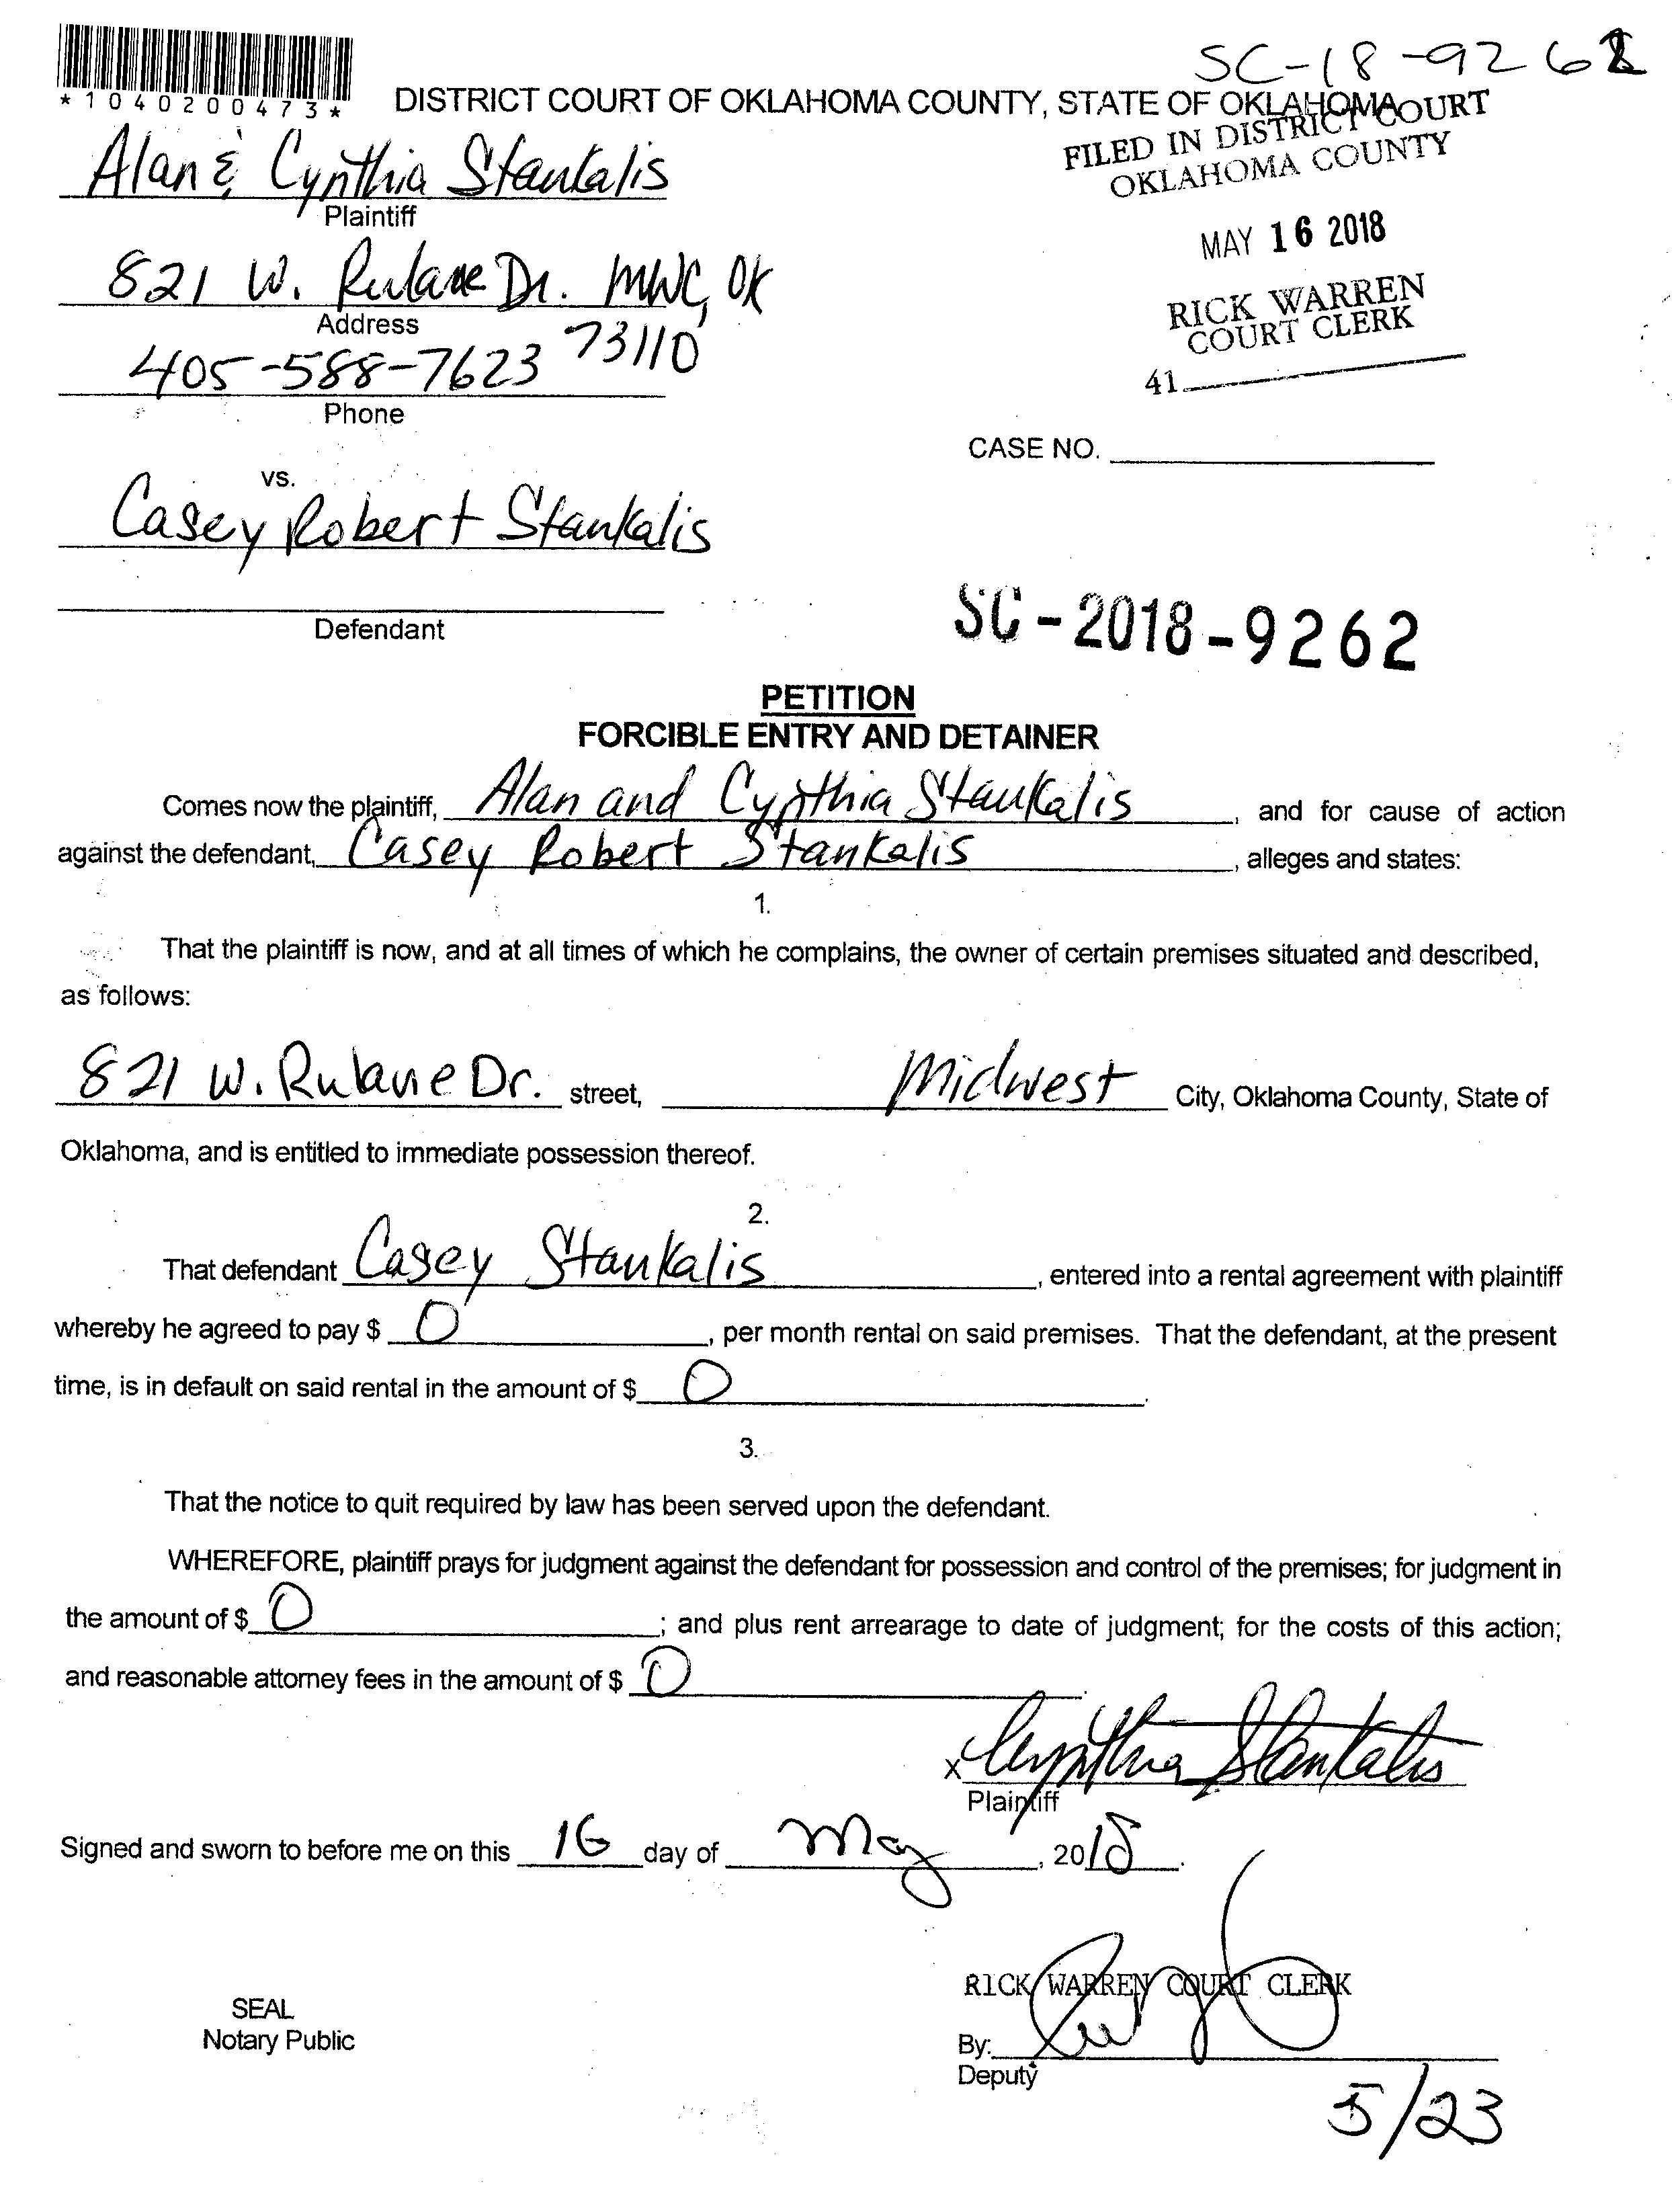 SC-18-9262
*1040200473*
DISTRICT COURT OF OKLAHOMA COUNTY, STATE OF OKLAHOMA
FILED IN DISTRICT COURT
OKLAHOMA COUNTY
MAY 16 2018
RICK WARREN
COURT CLERK
41
Alan & Cynthia Stankalis
Plaintiff
821 W. Rulane Dr. MWC, OK
Address
73110
405-588-7623
Phone
CASE NO.
vs.
Casey Robert Stankalis
Defendant
SC-2018-9262
PETITION
FORCIBLE ENTRY AND DETAINER
Comes now the plaintiff, Alan and Cynthia Stankalis, and for cause of action
against the defendant, Casey Robert Stankalis, alleges and states:
1.
That the plaintiff is now, and at all times of which he complains, the owner of certain premises situated and described,
as follows:
821 W. Rulane Dr. street, Midwest City, Oklahoma County, State of
Oklahoma, and is entitled to immediate possession thereof.
2.
That defendant Casey Stankalis, entered into a rental agreement with plaintiff
whereby he agreed to pay $ 0, per month rental on said premises. That the defendant, at the present
time, is in default on said rental in the amount of $ 0.
3.
That the notice to quit required by law has been served upon the defendant.
WHEREFORE, plaintiff prays for judgment against the defendant for possession and control of the premises; for judgment in
the amount of $ 0; and plus rent arrearage to date of judgment; for the costs of this action;
and reasonable attorney fees in the amount of $ 0.
x Cynthia Stankalis
Plaintiff
Signed and sworn to before me on this 16 day of May, 2018.
RICK WARREN COURT CLERK
SEAL
Notary Public
By:
Deputy
5/23